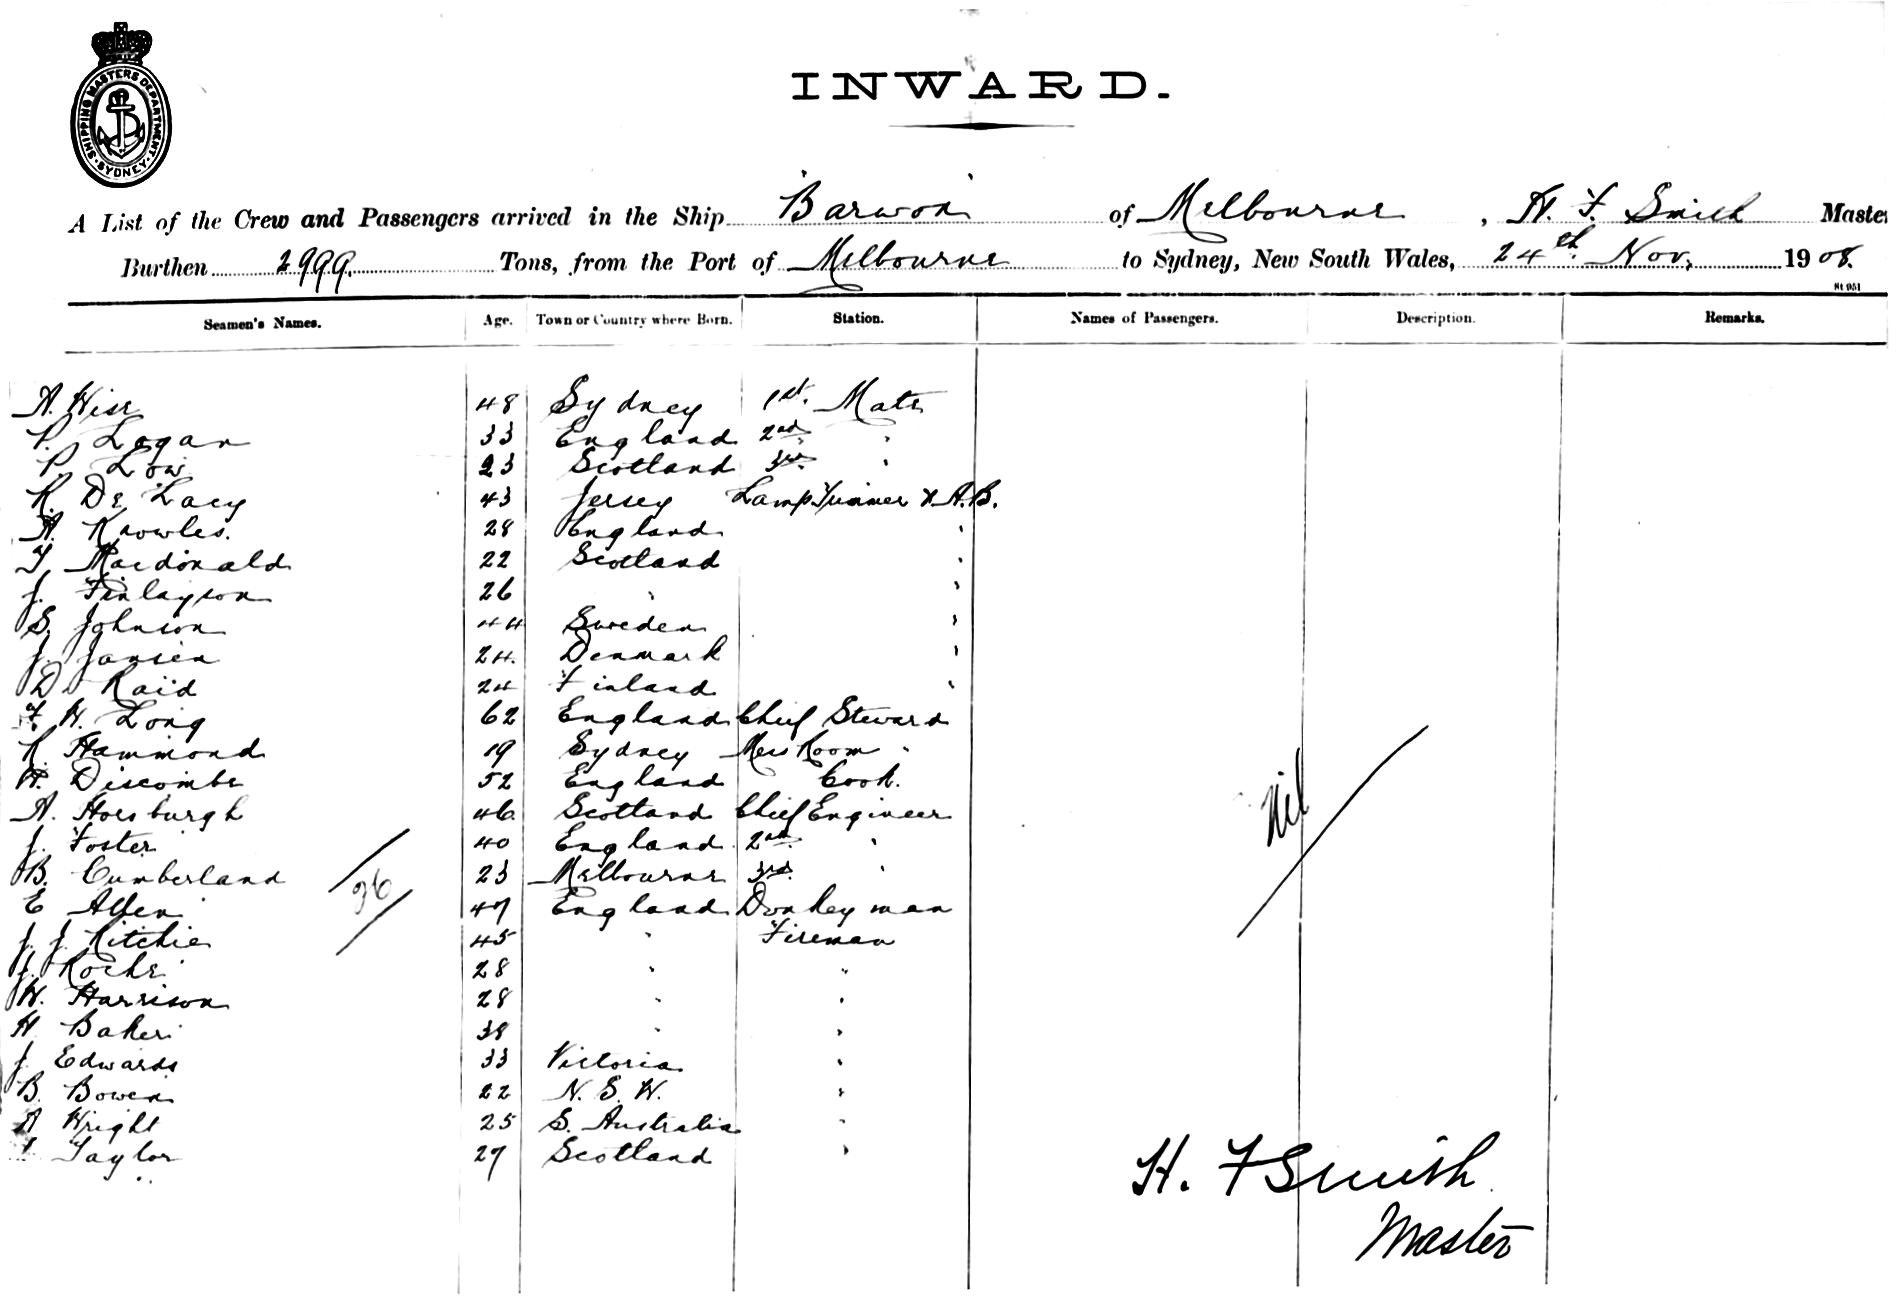 INWARD.
SHIPPING MASTERS DEPARTMENT · SYDNEY ·
A List of the Crew and Passengers arrived in the Ship "Barwon" of Melbourne, H. F. Smith Master
Burthen 2999 Tons, from the Port of Melbourne to Sydney, New South Wales, 24th Nov. 1908.
St 951
Seamen's Names. Age. Town or Country where Born. Station. Names of Passengers. Description. Remarks.
A. Wise 48 Sydney 1st. Mate
P. Logan 33 England 2nd "
P. Low 23 Scotland 3rd "
R. De Lacy 43 Jersey Lamp Trimmer & A.B.
A. Knowles. 28 England "
T. Macdonald 22 Scotland "
J. Finlayson 26 " "
S. Johnson 44 Sweden "
J. Jansen 24. Denmark "
D. Raid 24 Finland "
F. H. Long 62 England Chief Steward
R. Hammond 19 Sydney Mess Room "
H. Discombe 52 England Cook.
A. Horsburgh 46 Scotland Chief Engineer
J. Foster 40 England 2nd "
B. Cumberland 23 Melbourne 3rd. "
E Allen 47 England Donkeyman
J. J. Ritchie 45 " Fireman
J. Roche 28 " "
W. Harrison 28 " "
H Baker 38 " "
J. Edwards 33 Victoria "
B. Bowen 22 N. S. W. "
A Wright 25 S. Australia "
Taylor 27 Scotland "
26
Nil
H. F Smith
Master